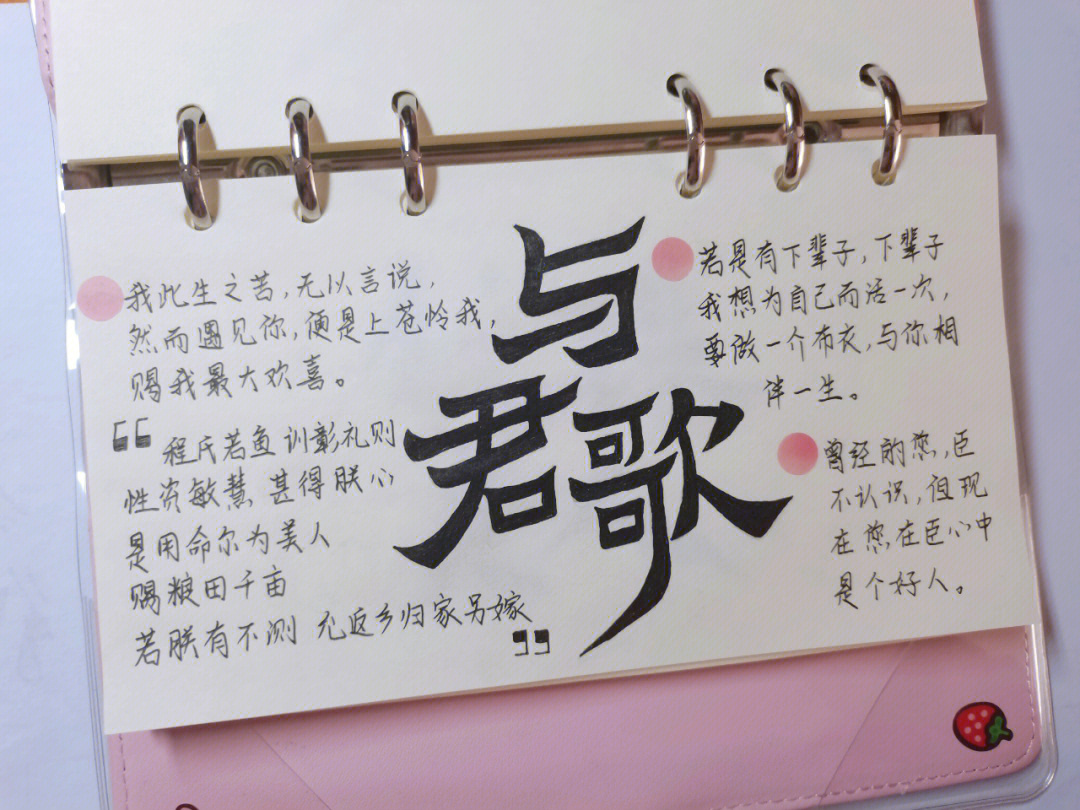 与
君歌
我此生之苦，无以言说，
然而遇见你，便是上苍怜我，
赐我最大欢喜。
“ 程氏若鱼训彰礼则
性资敏慧 甚得朕心
是用命尔为美人
赐粮田千亩
若朕有不测 允返乡归家另嫁 ”
若是有下辈子，下辈子
我想为自己而活一次，
要做一个布衣，与你相
伴一生。
曾经的您，臣
不认识，但现
在您在臣心中
是个好人。